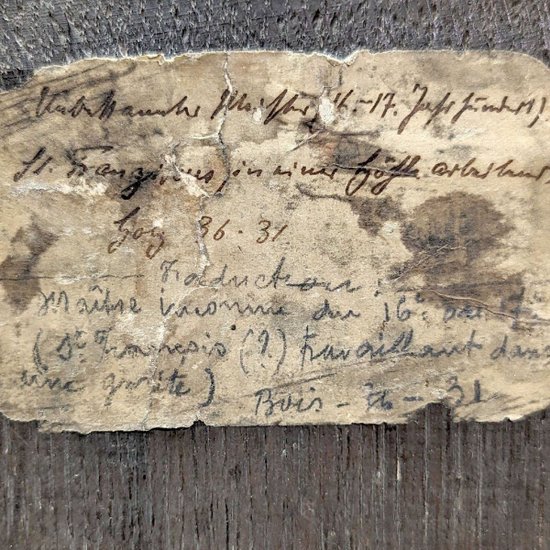 Unbekannter Meister, 16.-17. Jahrhundert,
St. Franziskus, in einer Höhle arbeitend,
Holz 36.31
Traduction :
Maître inconnu du 16e ou 17e
(St François (?) travaillant dans
une grotte)
Bois - 36 - 31